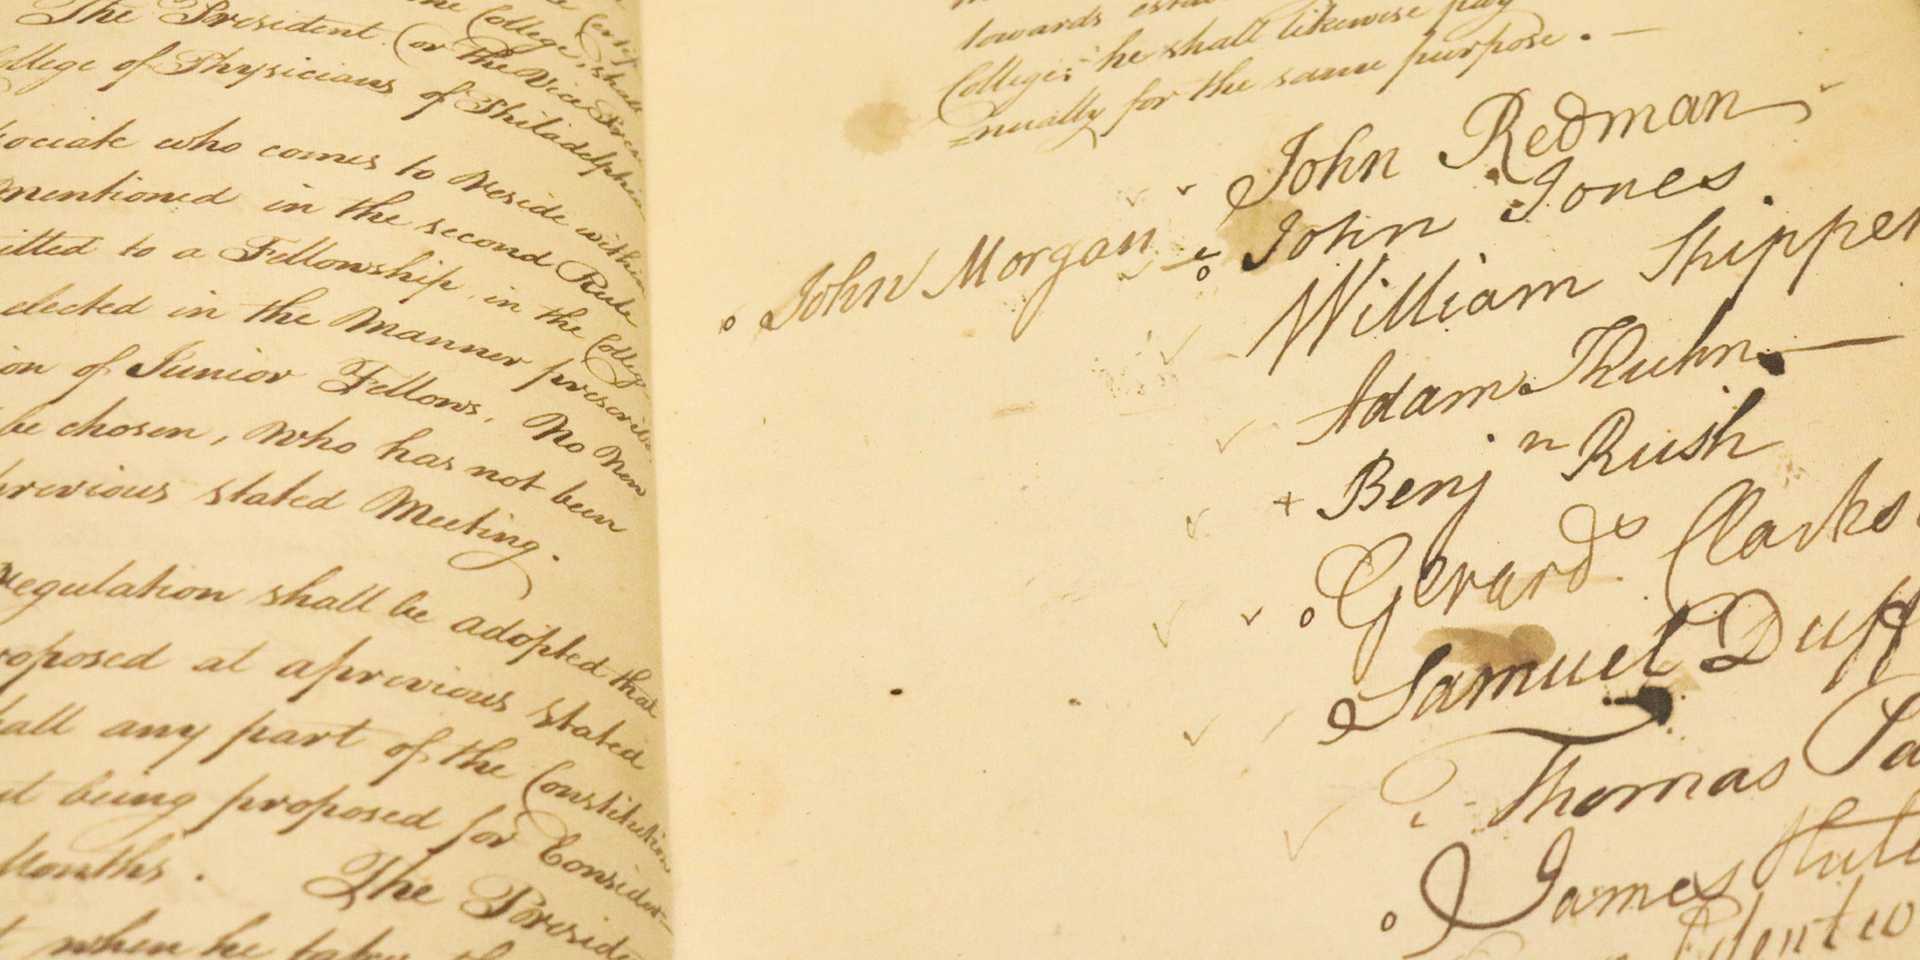 the College, shall
The President (or the Vice Pres
College of Physicians of Philadelphia
sociate who comes to reside within
mentioned in the second Rule
itted to a Fellowship in the Colleg
elected in the Manner prescrib
ion of Junior Fellows. No New
be chosen, who has not been
previous stated Meeting.
regulation shall be adopted that
roposed at a previous stated
hall any part of the Constitution
it being proposed for Consider-
Months. The Preside
when he takes the
towards
College; he shall likewise pay
nually for the same purpose. —
John Redman
John Morgan John Jones.
William Shippen
Adam Kuhn —
Benjn Rush
Gerards Clarks
Samuel Duff
Thomas Pa
James Hutc